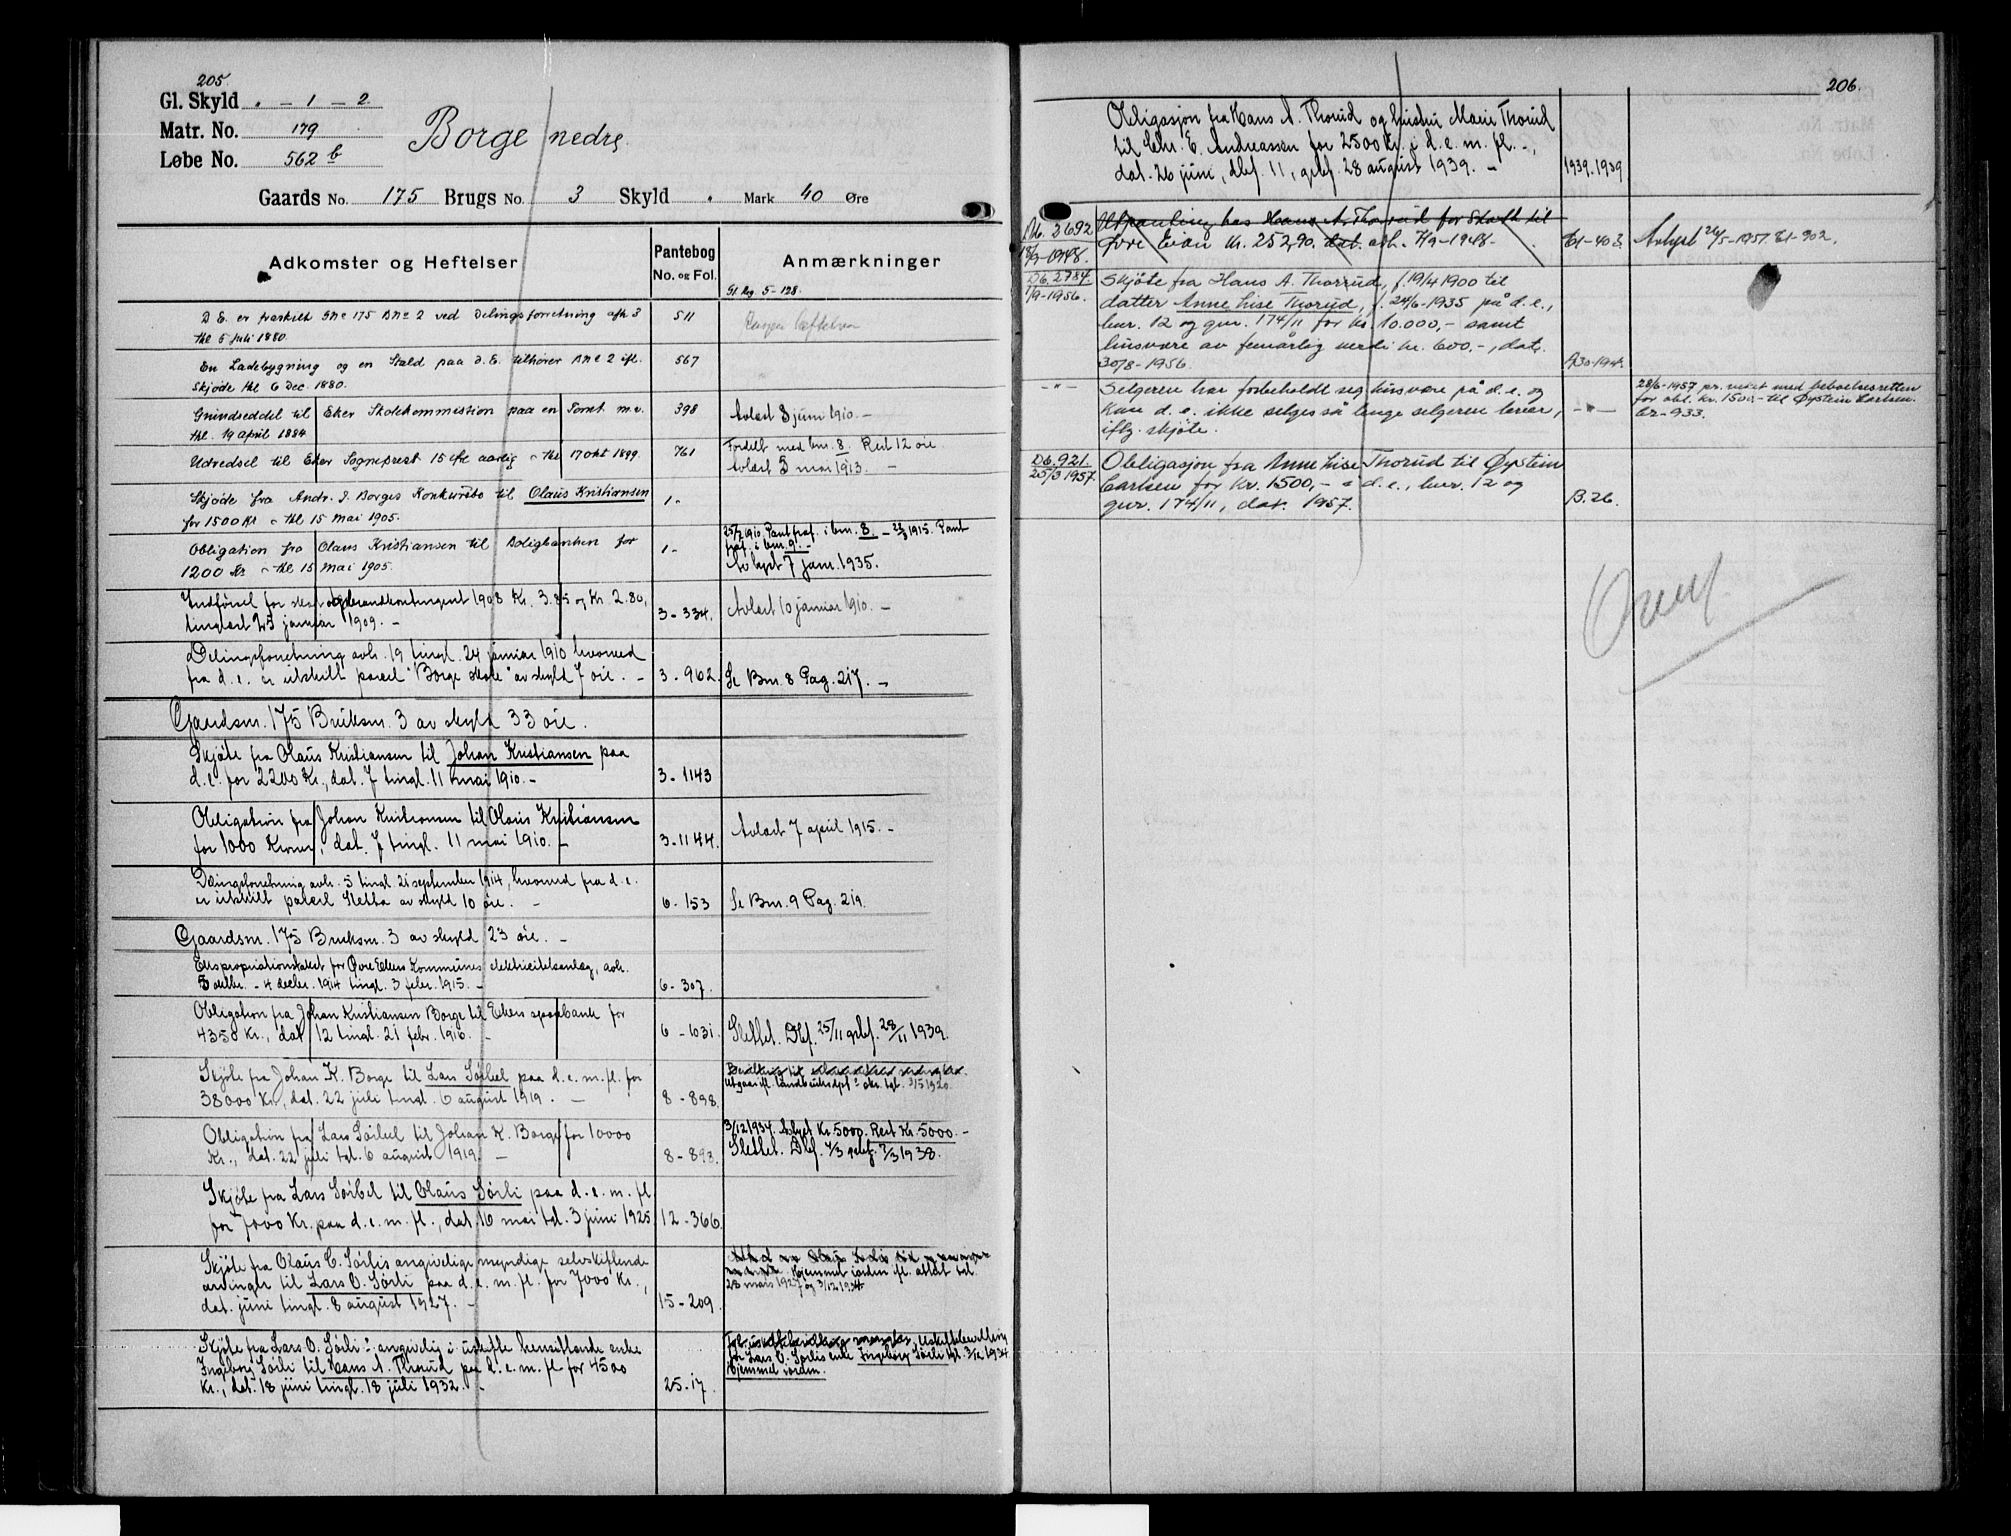 205.
Gl. Skyld " – 1 – 2
Matr. No. 179
Løbe No. 562 b
Borge nedre.
Gaards No. 175 Brugs No. 3 Skyld " Mark 40 Øre
Adkomster og Heftelser
Pantebog
No. og Fol.
Anmærkninger
Gl. Reg. 5-128.
D E. er fraskilt Gno 175 Bno 2 ved Delingsforretning afh 3
thl 5 Juli 1880.
511
En Ladebygning og en Stald paa d. E. tilhører Bno 2 ifl.
Skjøde thl 6 Dec. 1880.
567
Grundseddel til Eker Skolekommission paa en Tomt m.v.
thl. 19 april 1884
398
Avlæst 8 juni 1910. –
Udredsel til Eker Sogneprest 15 aarlig thl 17 Okt 1899.
761
Fordelt med bnr. 8. Rest 12 øre
Avlæst 5 mai 1913. –
Skjøde fra Andr. J. Borges Konkursbo til Olaus Kristiansen
for 1500 Kr thl 15 Mai 1905.
1 -
Obligation fra Olaus Kristiansen til Boligbanken for
1200 Kr thl 15 Mai 1905.
1 -
1910. Pantfraf. i bnr. 8. – 1915. Pant
fraf. i bnr. 9. –
Avlyst 7 jan. 1935.
Indførsel for skat og brandkontingent 1908 Kr. 3.85 og Kr. 2.80,
tinglæst 25 januar 1909. –
3 - 334.
Avlæst 10 januar 1910. –
Delingsforretning avh. 19 tingl. 24 januar 1910 hvorved
fra d. e. er utskilt parcel "Borge skole" av skyld 7 øre. –
3 - 962.
Se Bnr. 8 Pag. 217. –
Gaardsnr. 175 Bruksnr. 3 av skyld 33 øre.
Skjøte fra Olaus Kristiansen til Johan Kristiansen paa
d. e. for 2200 Kr., dat. 7 tingl. 11 mai 1910. –
3 - 1143
Obligation fra Johan Kristiansen til Olaus Kristiansen
for 1000 Kroner, dat. 7 tingl. 11 mai 1910. –
3 - 1144.
Avlæst 7 april 1915. –
Delingsforretning avh. 5 tingl. 21 september 1914, hvorved fra d. e.
er utskilt parcel Sletta av skyld 10 øre. –
6 - 153
Se Bnr. 9 Pag. 219.
Gaardsnr. 175 Bruksnr. 3 av skyld 23 øre. –
Ekspropriationstakst for Øvre Ekers Kommunes elektricitetsanlæg, avh.
5 oktbr. – 4 decbr. 1914 tingl. 3 febr. 1915. –
6 - 307.
Obligation fra Johan Kristiansen Borge til Ekers sparebank for
4350 Kr., dat 12 tingl. 21 febr. 1916. –
6 - 1031.
Slettet. Dbf. 25/11 gebf. 28/11 1939.
Skjøte fra Johan K. Borge til Lars Sørbel paa d. e. m. fl. for
38000 Kr., dat. 22 juli tingl. 6 august 1919. –
8 - 898.
Utgaar ifl. Landbruksdpt.s skr. tgl. 3/5 1920.
Obligation fra Lars Sørbel til Johan K. Borge for 10000
Kr., dat. 22 juli tgl. 6 august 1919. –
8 - 898.
3/12 1934. Avlyst Kr. 5000. Rest Kr. 5000. –
Slettet. Dbf. 4/3 gebf. 7/3 1938.
Skjøte fra Lars Sørbel til Olaus Sørli paa d. e. m. fl
for 7000 Kr. paa d. e. m. fl., dat. 16 mai tgl. 3 juni 1925
12 - 366.
Skjøte fra Olaus C. Sørlis angivelige myndige selvskiftende
arvinger til Lars O. Sørli paa d. e. m. fl. for 7000 Kr.,
dat. juni tingl. 8 august 1927. –
15 - 209.
Hjemmel iorden ifl. attest tgl.
28 mars 1927 og 3/12 1934
Skjøte fra Lars O. Sørlis angivelig i uskifte hensittende enke
Ingeborg Sørli til Hans A. Thorud paa d. e. m. fl for 4500
Kr., dat. 18 juni tingl. 18 juli 1932. –
25 - 17.
Tgl. uskiftebevilling mangler. Uskiftebevilling
for Lars O. Sørlis enke Ingeborg Sørli tgl. 3/12 1934
Hjemmel iorden.
206.
Obligasjon fra Hans A. Thorud og hustru Marie Thorud
til Chr. E. Andreassen for 2500 Kr. i d. e. m. fl. –,
dat. 26 juni, dbf. 11, gebf. 28 august 1939. –
1939. 1939
Db. 2692
/9-1948.
Utpantning hos Hans A. Thorud for Skatt til
Øvre Eiker Kr. 252,90. dat. avh. 7/9-1948.
E1-403.
Avlyst 26/5-1951. E1-902.
Db. 2784.
/9-1956.
Skjøte fra Hans A. Thorrud, f. 19/4 1900 til
datter Anne Lise Thorud, f. 24/6-1935 på d. e.,
bnr. 12 og gnr. 174/11 for kr. 10.000,– samt
husvære av femårlig verdi kr. 600,–, dat.
30/8-1956.
A30-1948.
– " –
Selgeren har forbeholdt seg husvære på d. e. og
kan d. e. ikke selges så lenge selgeren lever,
iflg. skjøte.
– " –
28/6-1957 pr. veket med beboelsesretten
for obl. kr. 1500,– til Øystein Carlsen.
Er-933.
Db. 921.
25/3 1957.
Obligasjon fra Anne Lise Thorud til Øystein
Carlsen for kr. 1500,– i d. e., bnr. 12 og
gnr. 174/11, dat. 1957.
B. 26.
Overf